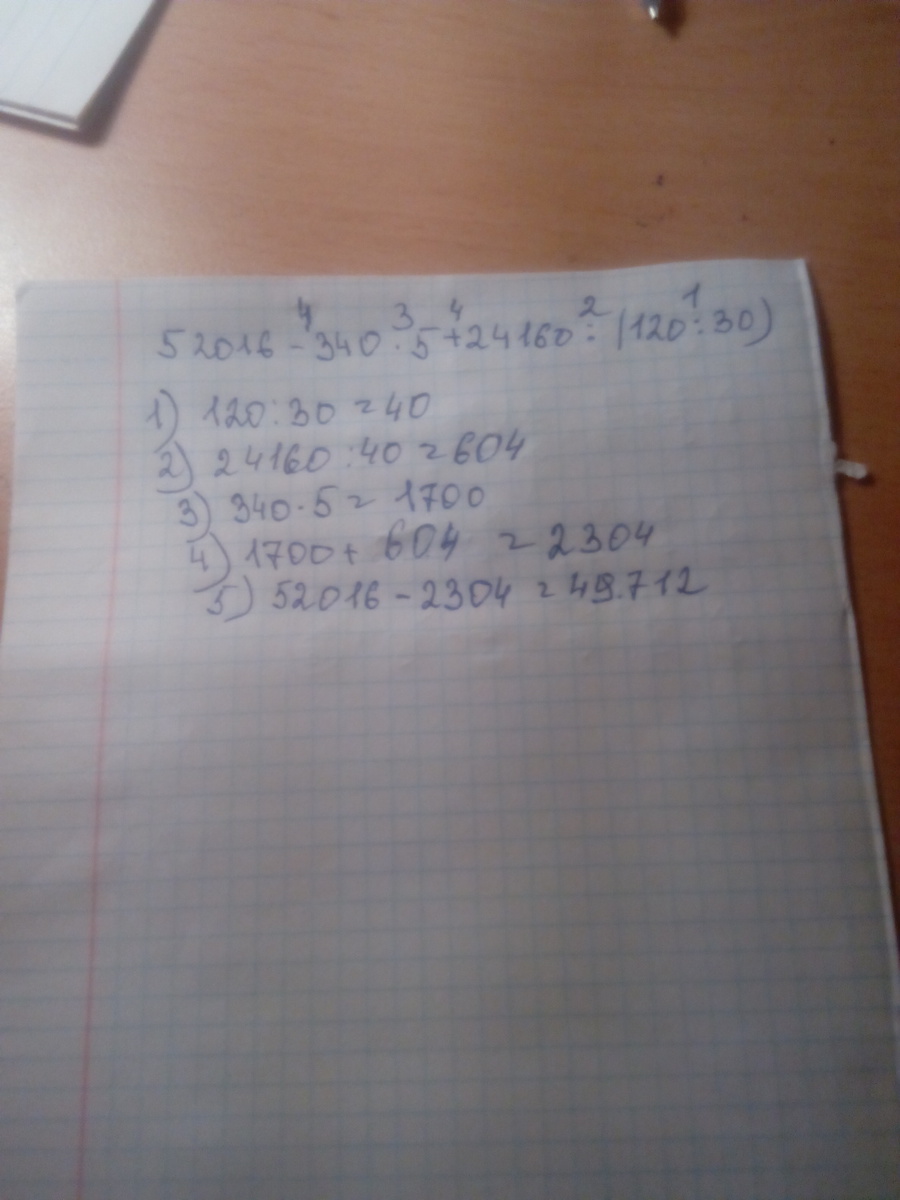 4 3 4 2 1
52016 - 340 · 5 + 24160 : (120 : 30)
1) 120 : 30 = 40
2) 24160 : 40 = 604
3) 340 · 5 = 1700
4) 1700 + 604 = 2304
5) 52016 - 2304 = 49.712